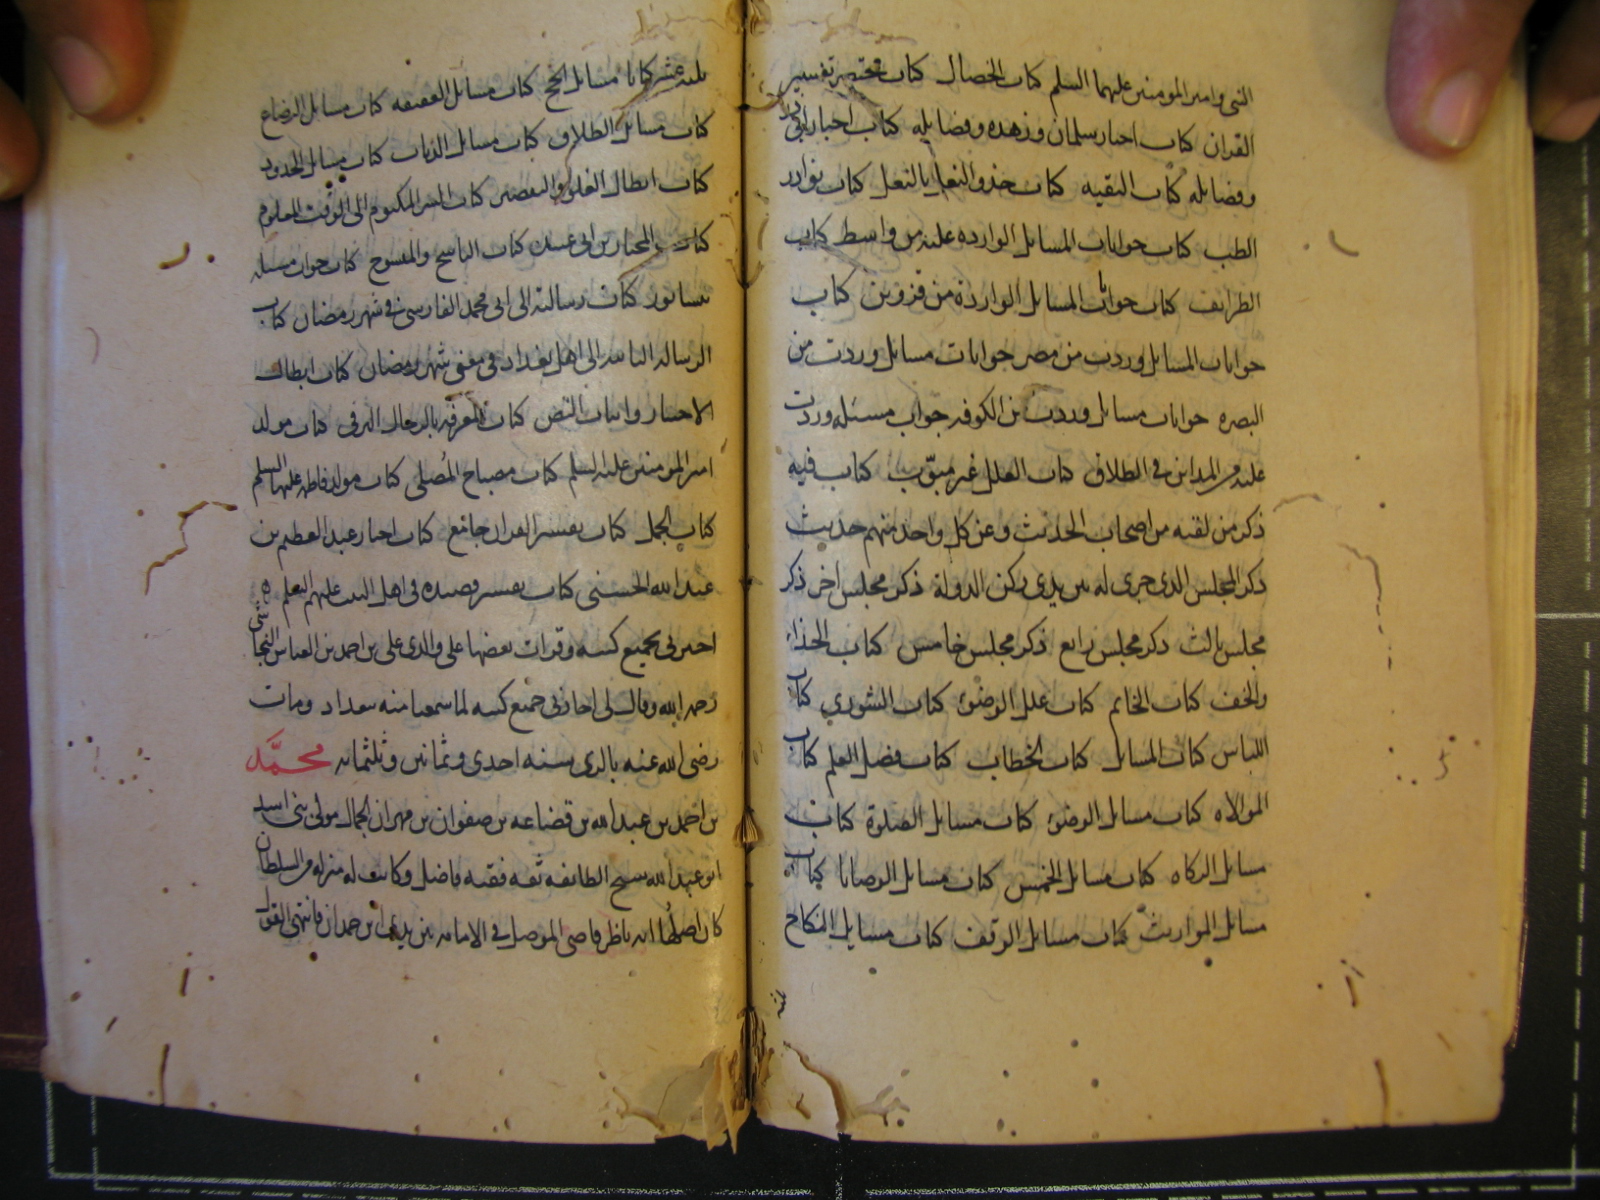 النبى وامير المومنين عليهما السلم كتاب الخصال كتاب مختصر تفسير
القران كتاب اخبار سلمان وزهده وفضايله كتاب اخبار ابى ذر
وفضايله كتاب التقيه كتاب حذو النعل بالنعل كتاب نوادر
الطب كتاب جوابات المسايل الوارده عليه من واسط كتاب
الطرايف كتاب جوابات المسايل الواردة من قزوين كتاب
جوابات المسايل وردت من مصر جوابات مسايل وردت من
البصره جوابات مسايل وردت من الكوفه جواب مسئله وردت
عليه من المداين فى الطلاق كتاب العلل غير مبوّب كتاب فيه
ذكر من لقيه من اصحاب الحديث وعن كل واحد منهم حديث
ذكر المجلس الذى جرى له بين يدى ركن الدولة ذكر مجلس اخر ذكر
مجلس ثالث ذكر مجلس رابع ذكر مجلس خامس كتاب الحذاء
والخف كتاب الخاتم كتاب علل الوضوء كتاب الشورى كتاب
اللباس كتاب المسايل كتاب الخطاب كتاب فضل العلم كتاب
الموالاه كتاب مسايل الوضوء كتاب مسايل الصلوة كتاب
مسايل الزكاه كتاب مسايل الخمس كتاب مسايل الوصايا كتاب
مسايل المواريث كتاب مسايل الوقف كتاب مسايل النكاح
ثلثه عشر كتابا مسايل الحج كتاب مسايل العقيقه كتاب مسايل الرضاع
كتاب مسايل الطلاق كتاب مسايل الديات كتاب مسايل الحدود
كتاب ابطال الغلو والتقصير كتاب السر المكتوم الى الوقت المعلوم
كتاب المختار بن ابى عبيد كتاب الناسخ والمنسوخ كتاب جواب مسئله
نيسابور كتاب رسالته الى ابى محمد الفارسى فى شهر رمضان كتاب
الرساله الثانيه الى اهل بغداد فى معنى شهر رمضان كتاب ابطال
الاختيار واثبات النص كتاب المعرفه بالرجال البرقى كتاب مولد
امير المومنين عليه السلم كتاب مصباح المُصلى كتاب مولد فاطمه عليها السلم
كتاب الجمل كتاب تفسير القران جامع كتاب اخبار عبد العظيم بن
عبد الله الحسنى كتاب تفسير قصيده فى اهل البيت عليهم السلم
اخبرنى بجميع كتبه وقرات بعضها على والدى على بن احمد بن العباس النجاشى
رحمه الله وقال لى اجازنى جميع كتبه لما سمعنا منه ببغداد ومات
رضى الله عنه بالرى سنه احدى وثمانين وثلثمائه محمّد
بن احمد بن عبد الله بن قضاعه بن صفوان بن مهران الجمال مولى بنى اسد
ابو عبد الله شيخ الطايفه ثقه فقيه فاضل وكانت له منزله من السلطان
كان اصلها انه ناظر قاضى الموصل فى الامامه بين يدى ابن حمدان فانتهى القول